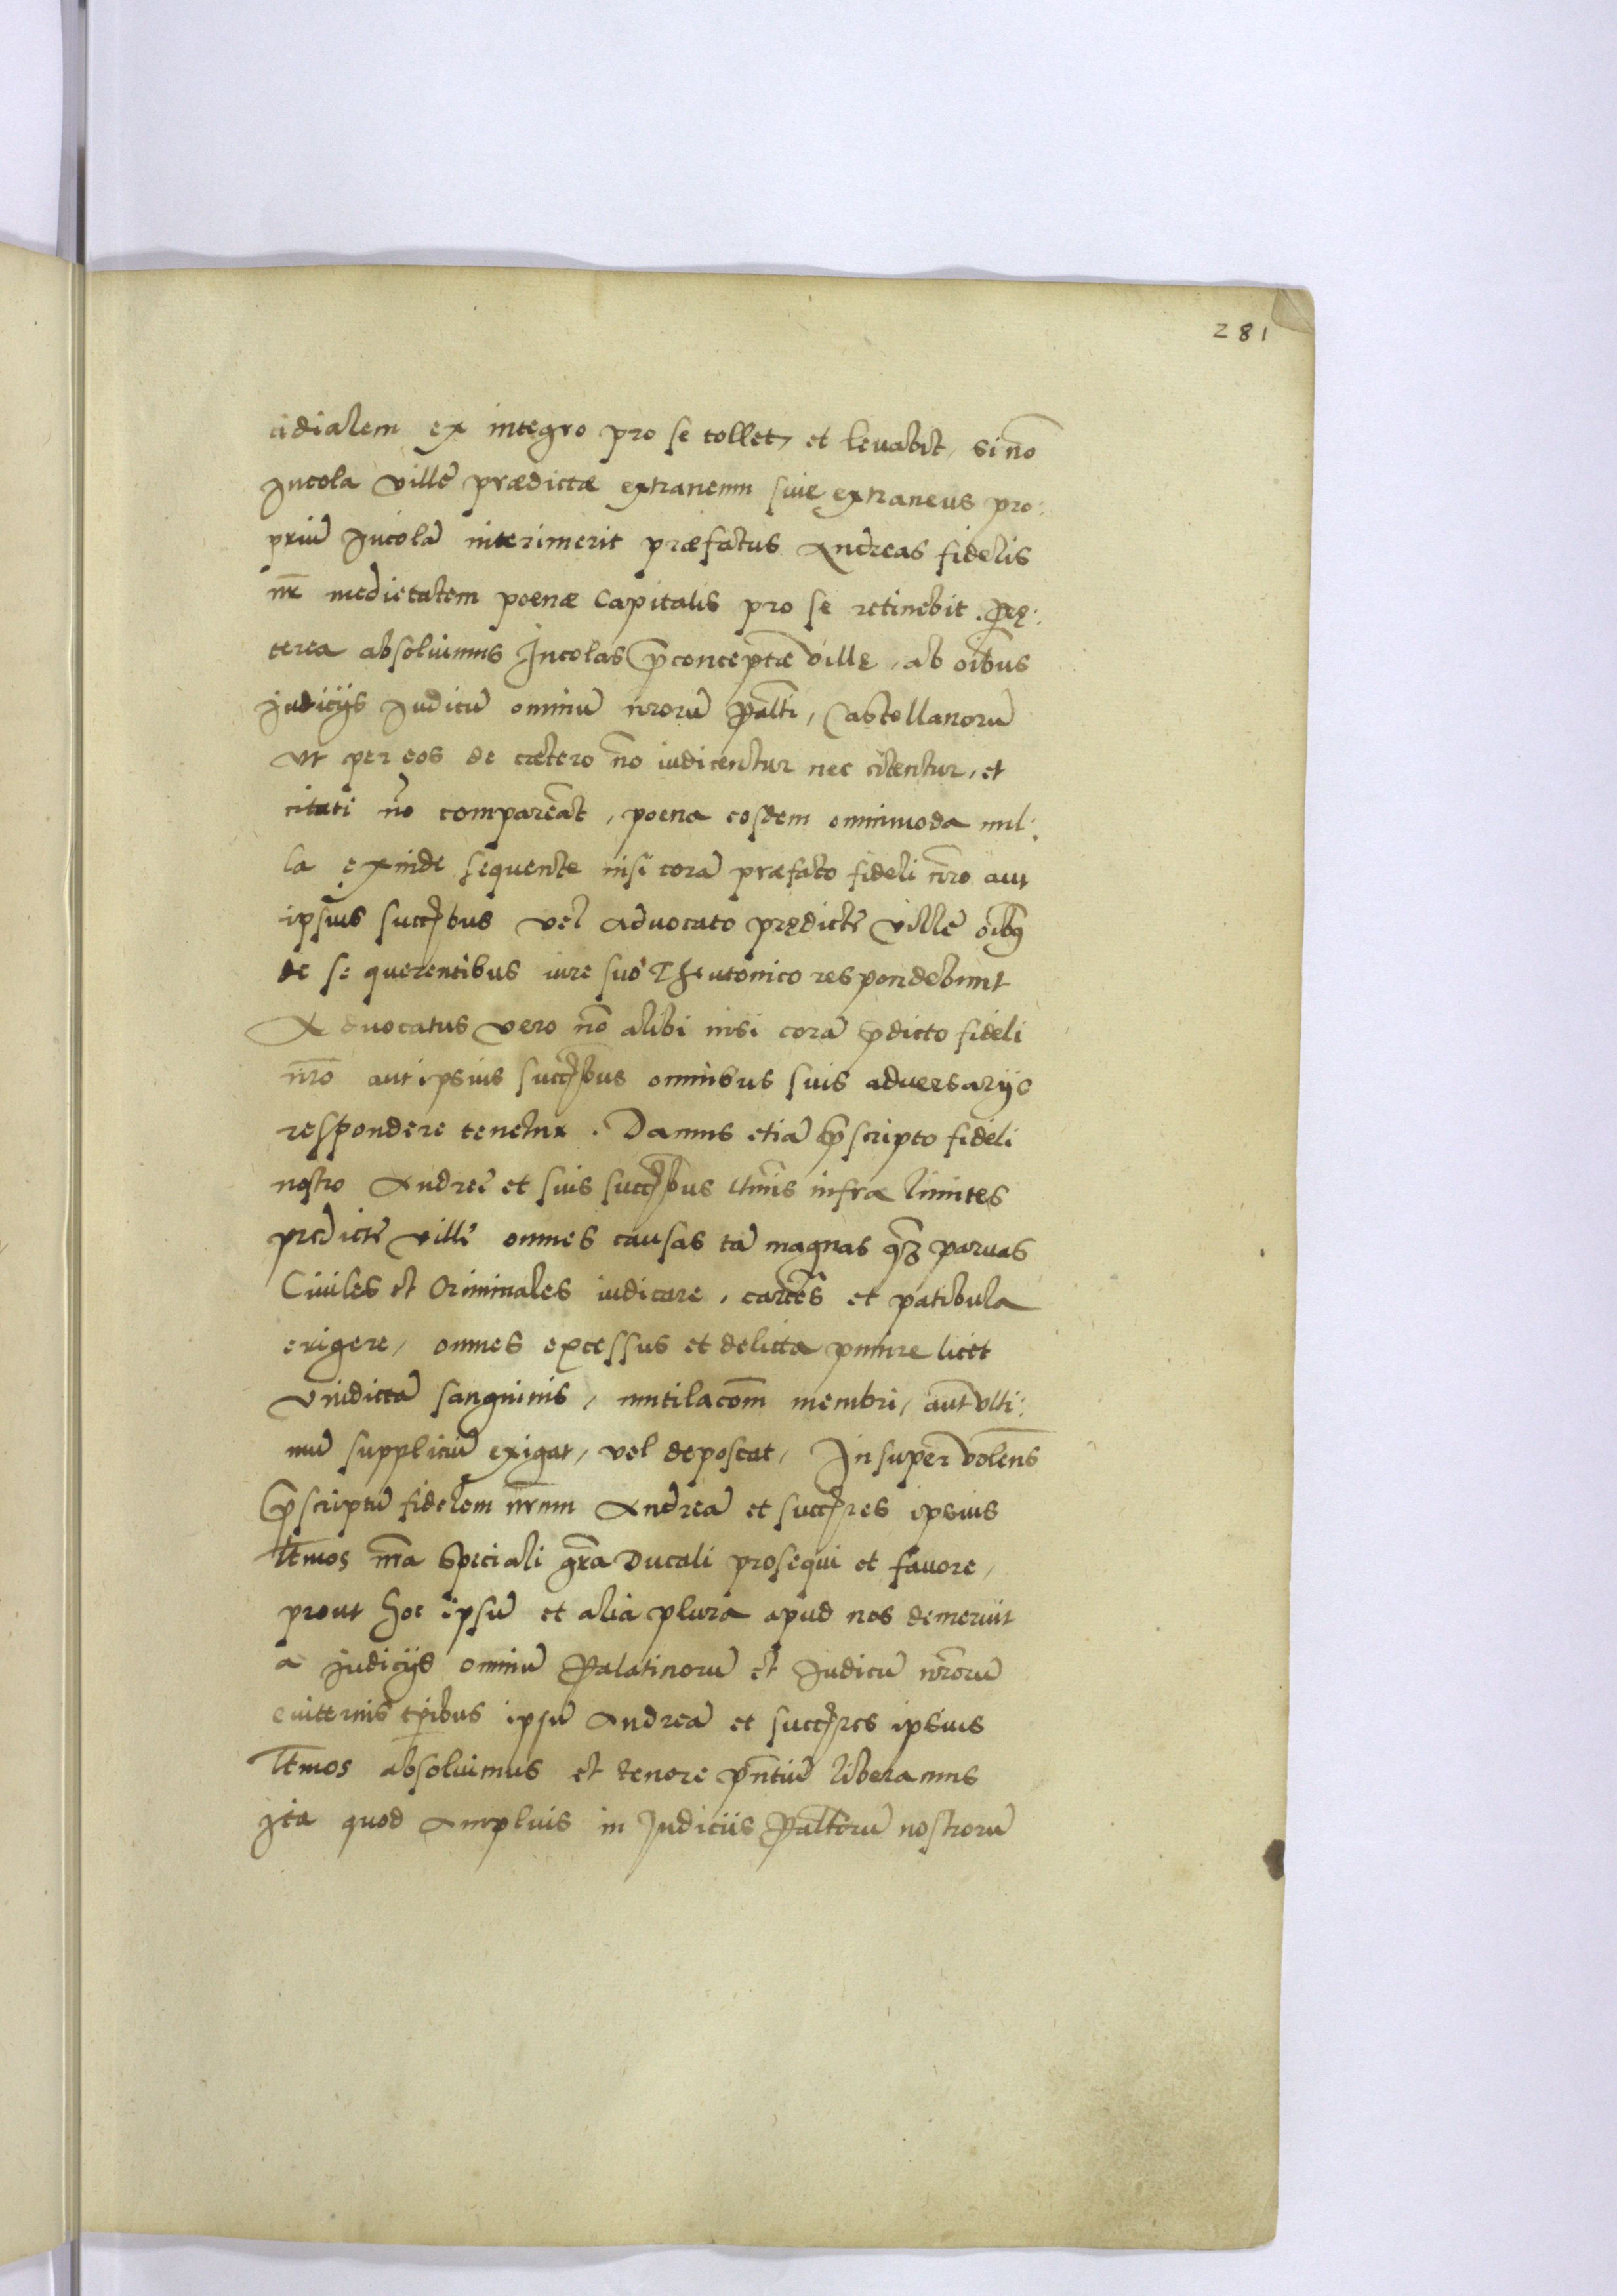 281
cidialem ex integro pro se tollet, et levabit, si no͞
Incola ville prædictæ extraneum sive extraneus pro:
priu͂ Incola͂ interimerit præfatus Andreas fidelis
nr͞ medietatem poenæ Capitalis pro se retinebit. Prę:
terea absolvimus Incolas p͞conceptæ villę, ab oi͞bus
Iudicijs Iudicu͂ omniu͂ nroru͂ Pal͞ti, Castellanoru͂
Ut per eos de cætero no͞ iudicentur nec citentur, et
citati no͞ comparea͞t, poena eosdem omnimoda nul:
la exinde sequente nisi cora͂ præfato fideli nr͞o aut
ipsius succ͞bus vel Advocato prędicte ville oi͞bq
de se querentibus iure suo Theutonico respondebunt
Advocatus vero no͞ alibi nisi cora͂ p͞dicto fideli
nr͞o aut ipsius succ͞bus omnibus suis adversarijs
respondere tenetur. Damus etia͂ p͞scripto fideli
nostro Andree et suis succ͞bus l͞timis infra limites
predicte ville omnes causas ta͂ magnas q͞z parvas
Civiles et Criminales iudicare, carce͞s et patibula
erigere, omnes excessus et delicta punire licet
Vindicta͂ sanguinis, mutilaco͞m membri, aut ulti:
mu͂ suppliciu͂ exigat, vel deposcat, Insuper vole͞ns
p͞scriptu͂ fidelem nr͞um Andrea͂ et succ͞res ipsius
l͞tmos nr͞a Speciali gr͞a Ducali prosequi et favore,
prout hoc ipsu͂ et alia plura apud nos demeruit
a Iudicijs omniu͂ Palatinoru͂ et Iudicu͂ nr͞oru͂
eviternis tp͞ibus ipsu͂ Andrea͂ et succ͞res ipsius
l͞tmos absolvimus et tenore p͞ntiu͂ liberamus
Ita quod Amplius in Iudiciis Pal͞toru͂ nostroru͂